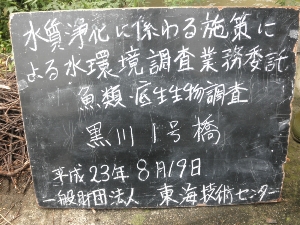 水質浄化に係わる施策に
よる水環境調査業務委託
魚類・底生生物調査
黒川1号橋
平成23年8月19日
一般財団法人 東海技術センター